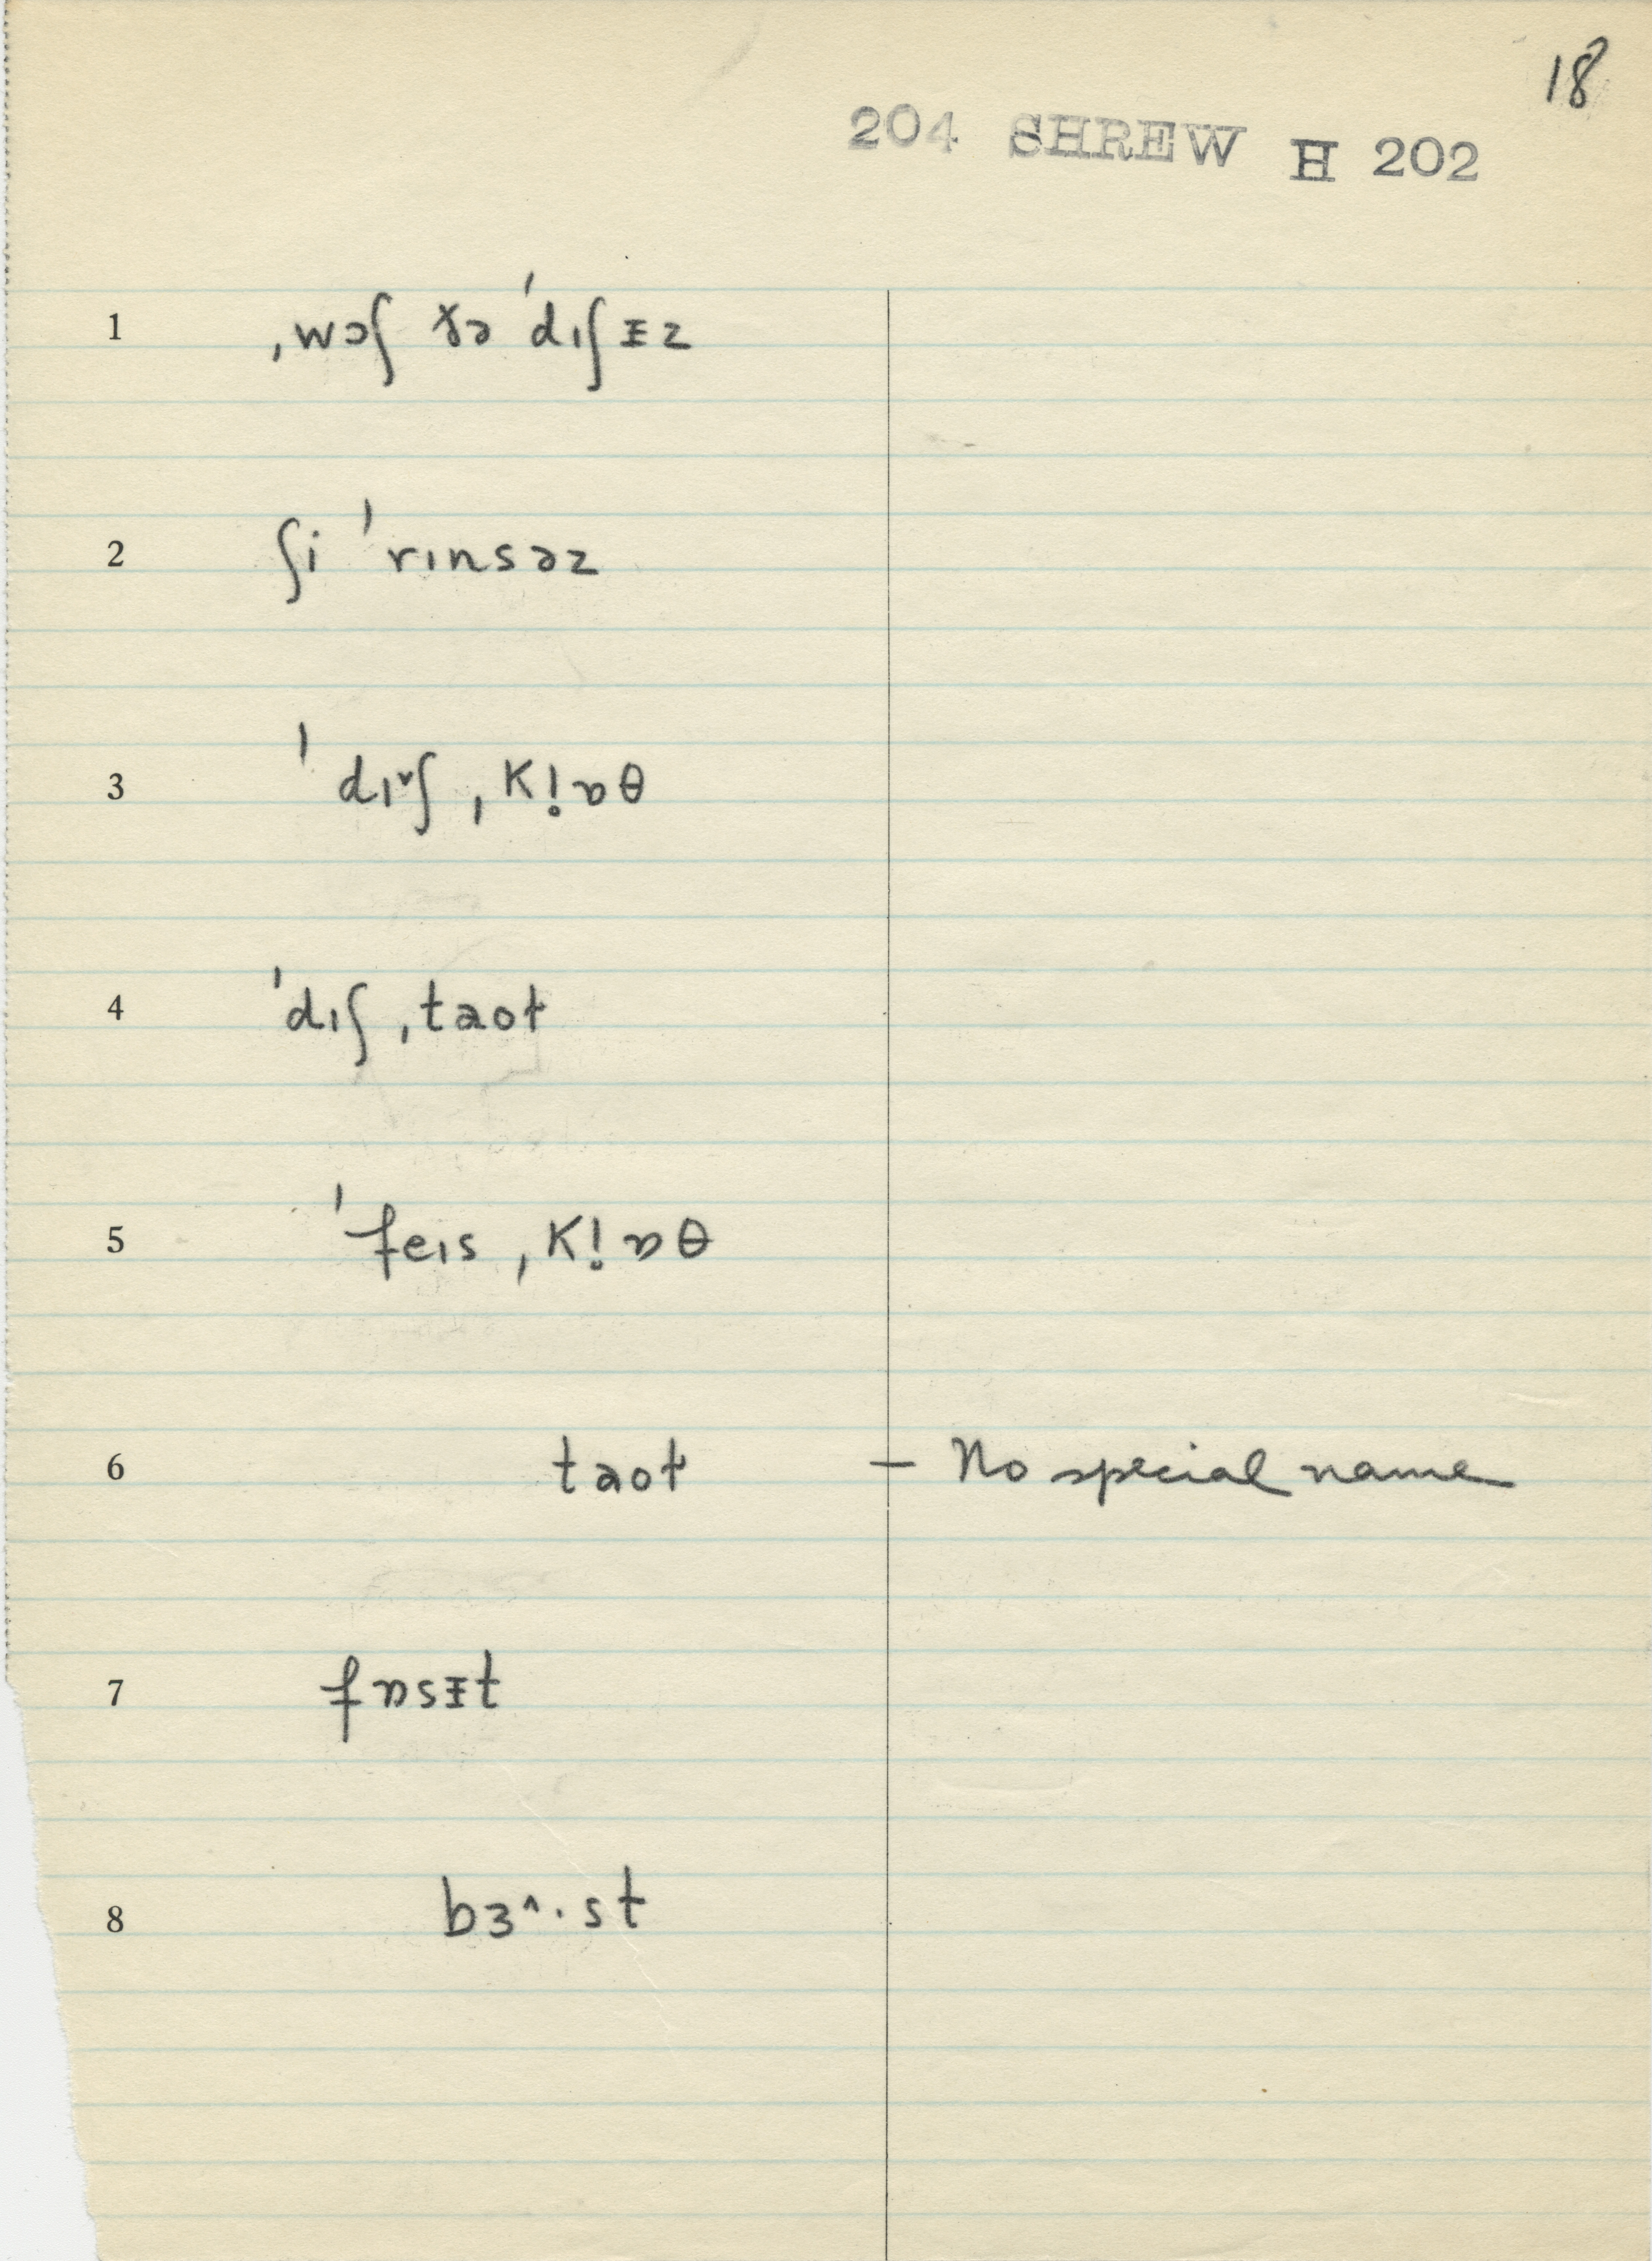 18
204 SHREW H 202
1 ˌwɔʃ ðə ˈdɪʃᵻz
2 ʃi ˈrɪnsəz
3 ˈdɪ˅ʃ ˌk!ɒθ
4 ˈdɪʃ ˌtaoɫ
5 ˈfeɪs ˌk!ɒθ
6 taoɫ — No special name
7 fɒsᵻt
8 bɜ^·st